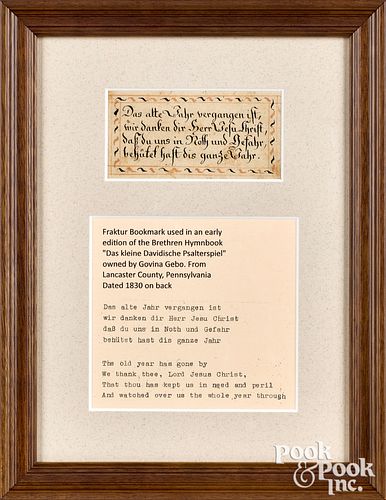 Das alte Jahr vergangen ist,
wir danken dir Herr Jesu Christ,
daß du uns in Noth und Gefahr,
behütet hast dis ganze Jahr.
Fraktur Bookmark used in an early
edition of the Brethren Hymnbook
"Das kleine Davidische Psalterspiel"
owned by Govina Gebo. From
Lancaster County, Pennsylvania
Dated 1830 on back
Das alte Jahr vergangen ist
wir danken dir Herr Jesu Christ
daß du uns in Noth und Gefahr
behütst hast dis ganze Jahr
The old year has gone by
We thank thee, Lord Jesus Christ,
That thou has kept us in need and peril
And watched over us the whole year through
POOK
& POOK
INC.